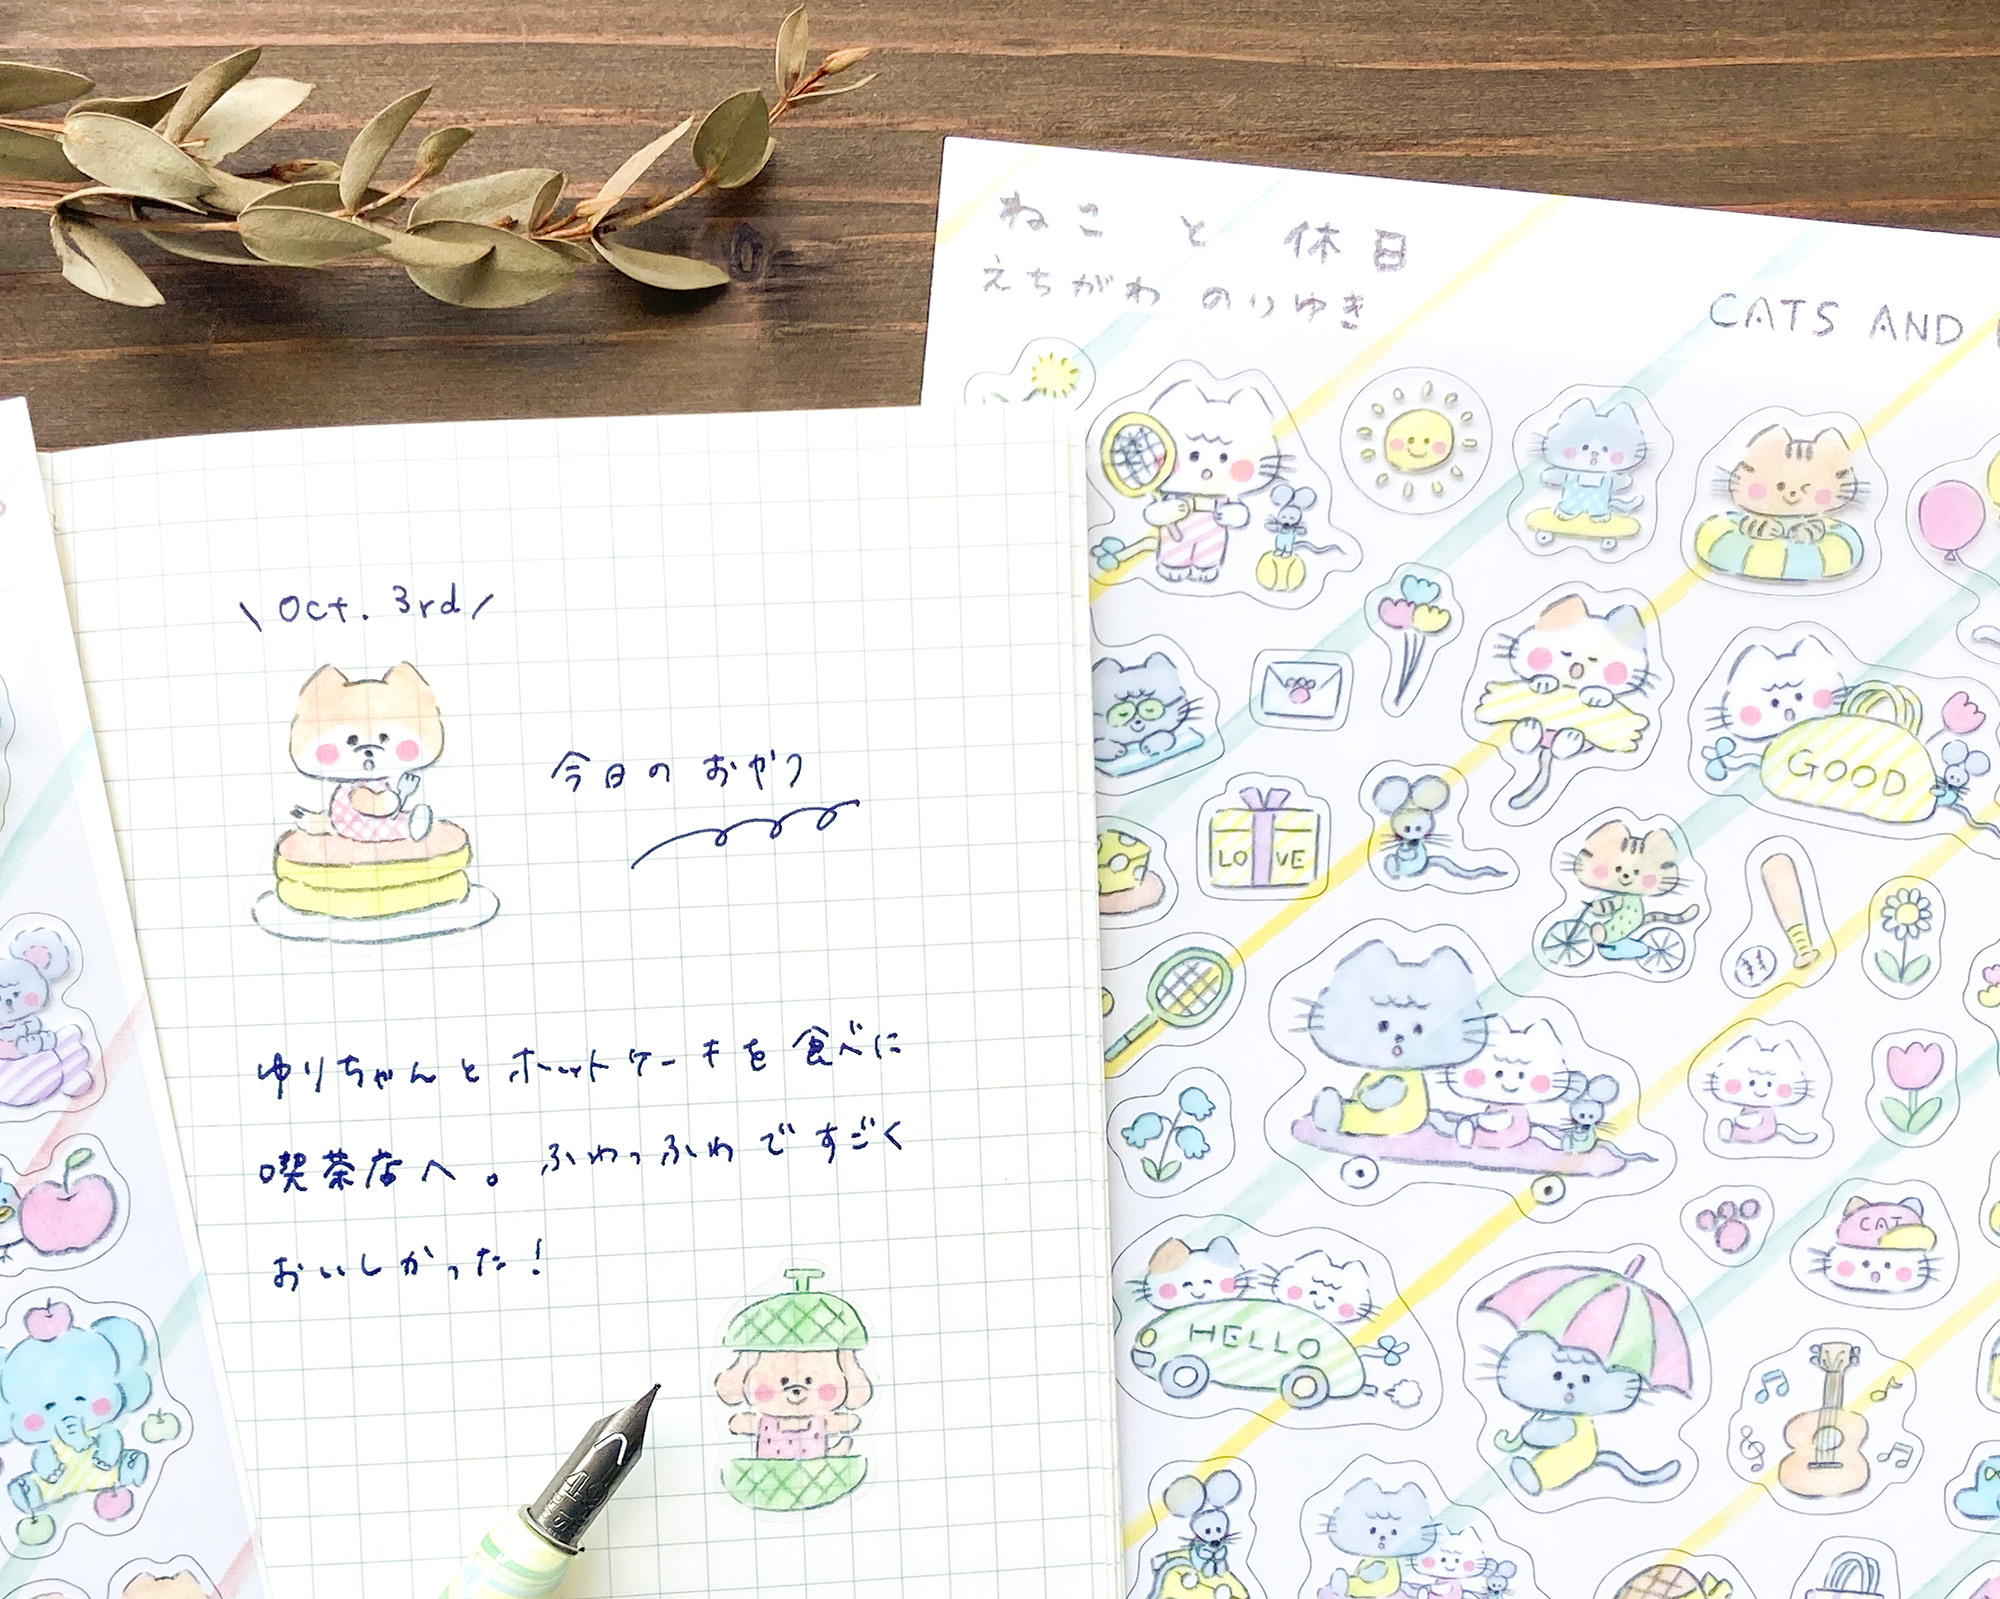 \ Oct. 3rd /
今日の おやつ
ゆりちゃんと ホットケーキを 食べに
喫茶店へ。ふわっふわで すごく
おいしかった!
ねこ と 休日
えちがわ のりゆき
CATS AND
GOOD
LOVE
CAT
HELLO